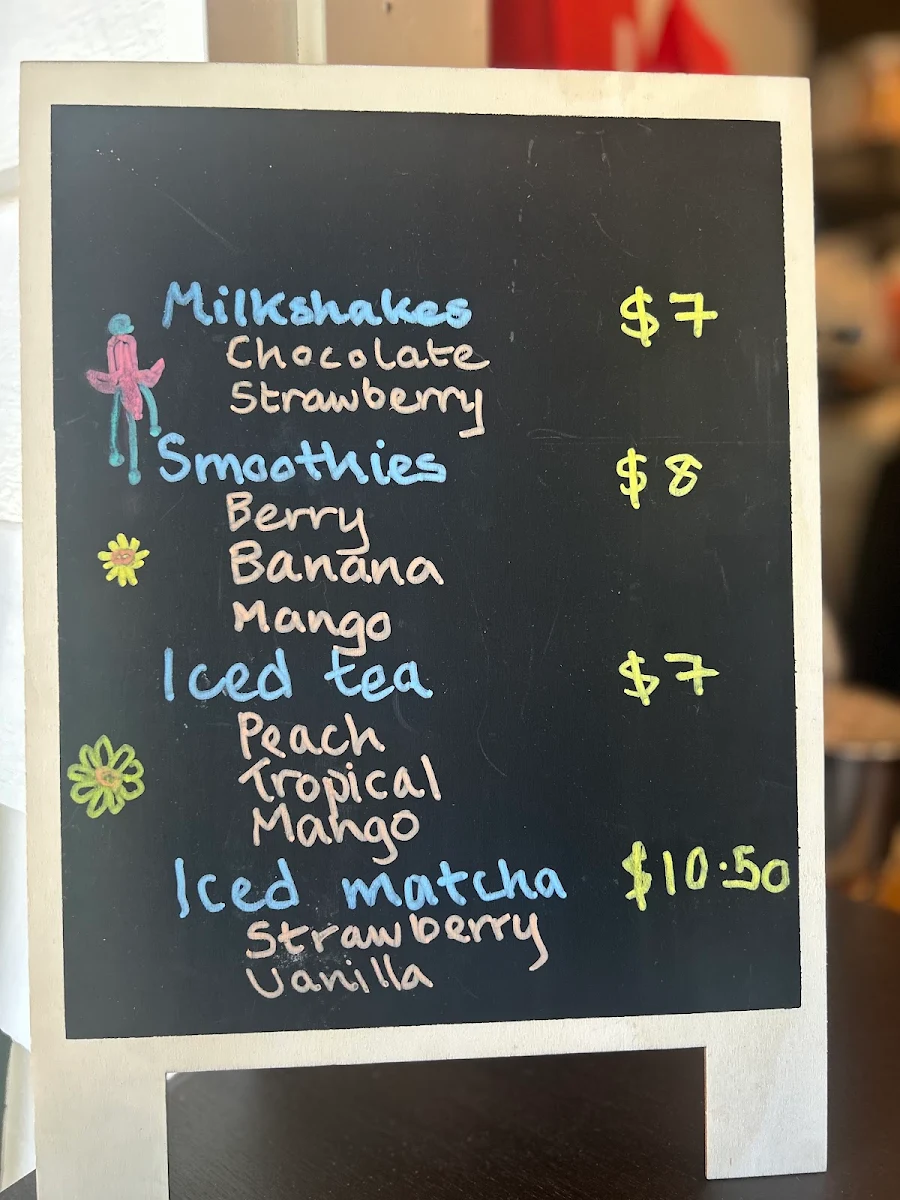 Milkshakes $7
Chocolate
Strawberry
Smoothies $8
Berry
Banana
Mango
Iced tea $7
Peach
Tropical
Mango
Iced matcha $10.50
Strawberry
Vanilla